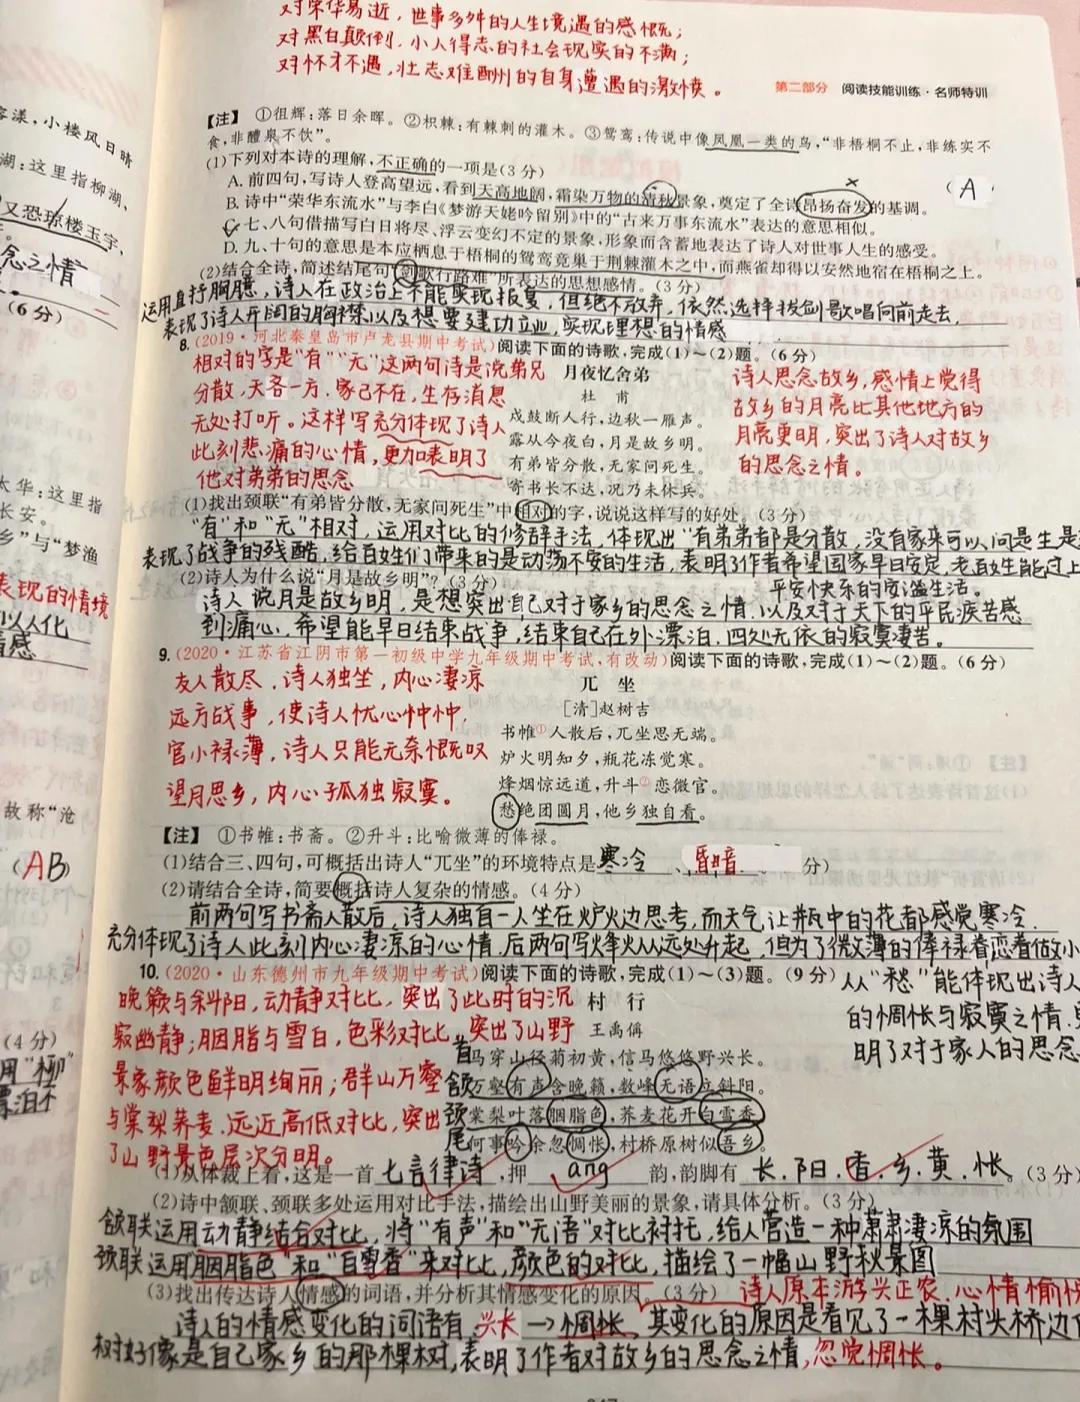 对荣华易逝，世事多舛的人生境遇的感慨；
对黑白颠倒，小人得志的社会现实的不满；
对怀才不遇，壮志难酬的自身遭遇的激愤。
第二部分 阅读技能训练·名师特训
容漾，小楼风日晴
湖：这里指柳湖、
又恐琼楼玉宇，
念之情
（6分）
太华：这里指
长安。
乡”与“梦渔
表现的情境
以人化
情感
故称“沧
（AB）
（4分）
用“柳”
漂泊不
【注】 ①徂辉：落日余晖。②枳棘：有棘刺的灌木。③鸳鸾：传说中像凤凰一类的鸟，“非梧桐不止，非练实不
食，非醴泉不饮”。
(1)下列对本诗的理解，不正确的一项是(3分) （A）
A. 前四句，写诗人登高望远，看到天高地阔，霜染万物的清秋景象，奠定了全诗昂扬奋发的基调。
B. 诗中“荣华东流水”与李白《梦游天姥吟留别》中的“古来万事东流水”表达的意思相似。
C. 七、八句借描写白日将尽、浮云变幻不定的景象，形象而含蓄地表达了诗人对世事人生的感受。
D. 九、十句的意思是本应栖息于梧桐的鸳鸾竟巢于荆棘灌木之中，而燕雀却得以安然地宿在梧桐之上。
(2)结合全诗，简述结尾句“剑歌行路难”所表达的思想感情。(3分)
运用直抒胸臆，诗人在政治上不能实现报复，但绝不放弃，依然选择拔剑歌唱向前走去，
表现了诗人开阔的胸襟以及想要建功立业，实现理想的情感
8. (2019·河北秦皇岛市卢龙县期中考试)阅读下面的诗歌，完成(1)～(2)题。(6分)
相对的字是“有”“无”这两句诗是说弟兄
分散，天各一方，家已不在，生存消息
无处打听。这样写充分体现了诗人
此刻悲痛的心情，更加表明了
他对弟弟的思念
月夜忆舍弟
杜 甫
戍鼓断人行，边秋一雁声。
露从今夜白，月是故乡明。
有弟皆分散，无家问死生。
寄书长不达，况乃未休兵。
诗人思念故乡，感情上觉得
故乡的月亮比其他地方的
月亮更明，突出了诗人对故乡
的思念之情。
(1)找出颈联“有弟皆分散，无家问死生”中相对的字，说说这样写的好处。(3分)
“有”和“无”相对，运用对比的修辞手法，体现出“有弟弟都是分散，没有家来可以问是生是
表现了战争的残酷，给百姓们带来的是动荡不安的生活，表明了作者希望国家早日安定，老百姓能过上
平安快乐的安谧生活。
(2)诗人为什么说“月是故乡明”？(3分)
诗人说月是故乡明，是想突出自己对于家乡的思念之情，以及对于天下的平民疾苦感
到痛心，希望能早日结束战争，结束自己在外漂泊，四处无依的寂寞凄苦。
9. (2020·江苏省江阴市第一初级中学九年级期中考试，有改动)阅读下面的诗歌，完成(1)～(2)题。(6分)
友人散尽，诗人独坐，内心凄凉
远方战事，使诗人忧心忡忡，
官小禄薄，诗人只能无奈慨叹
望月思乡，内心孤独寂寞。
兀 坐
[清]赵树吉
书帷①人散后，兀坐思无端。
炉火明知夕，瓶花冻觉寒。
烽烟惊远道，升斗②恋微官。
愁绝团圆月，他乡独自看。
【注】 ①书帷：书斋。②升斗：比喻微薄的俸禄。
(1)结合三、四句，可概括出诗人“兀坐”的环境特点是寒冷、昏暗 分)
(2)请结合全诗，简要概括诗人复杂的情感。(4分)
前两句写书斋人散后，诗人独自一人坐在炉火边思考，而天气让瓶中的花都感觉寒冷，
充分体现了诗人此刻内心凄凉的心情，后两句写烽火从远处升起，但为了微薄的俸禄眷恋着做小
从“愁”能体现出诗人
的惆怅与寂寞之情，
明了对于家人的思念
10. (2020·山东德州市九年级期中考试)阅读下面的诗歌，完成(1)～(3)题。(9分)
晚籁与斜阳，动静对比，突出了此时的沉
寂幽静；胭脂与雪白，色彩对比，突出了山野
景象颜色鲜明绚丽；群山万壑
与棠梨荞麦，远近高低对比，突出
了山野景色层次分明。
村 行
王禹偁
首 马穿山径菊初黄，信马悠悠野兴长。
颔 万壑有声含晚籁，数峰无语立斜阳。
颈 棠梨叶落胭脂色，荞麦花开白雪香。
尾 何事吟余忽惆怅，村桥原树似吾乡。
(1)从体裁上看，这是一首七言律诗，押ang韵，韵脚有长.阳.香.乡.黄.怅。(3分)
(2)诗中颔联、颈联多处运用对比手法，描绘出山野美丽的景象，请具体分析。(3分)
颔联运用动静结合对比，将“有声”和“无语”对比衬托，给人营造一种萧肃凄凉的氛围
颈联运用“胭脂色”和“白雪香”来对比，颜色的对比，描绘了一幅山野秋景图
(3)找出传达诗人情感的词语，并分析其情感变化的原因。(3分) 诗人原本游兴正农，心情愉快
诗人的情感变化的词语有兴长→惆怅，其变化的原因是看见了一棵村头桥边
树好像是自己家乡的那棵树，表明了作者对故乡的思念之情，忽觉惆怅。